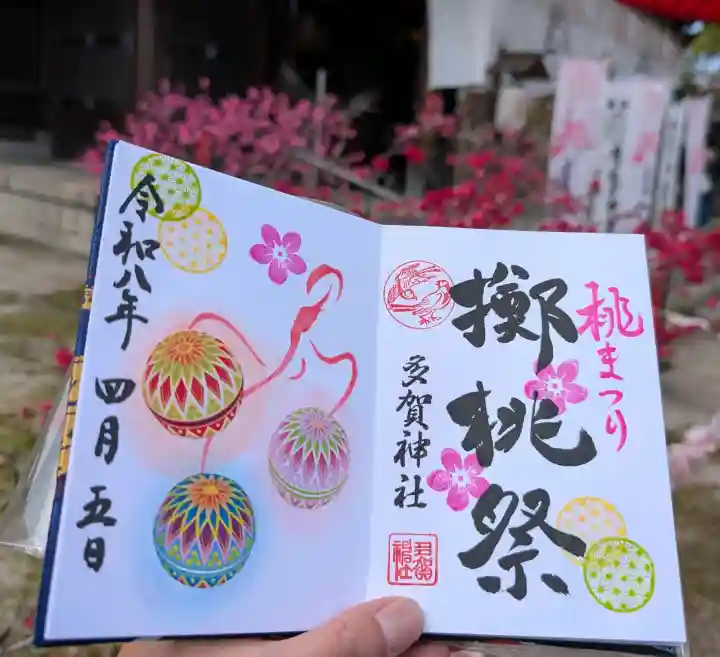 桃まつり
擲桃祭
多賀神社
多賀神社
令和八年 四月 五日